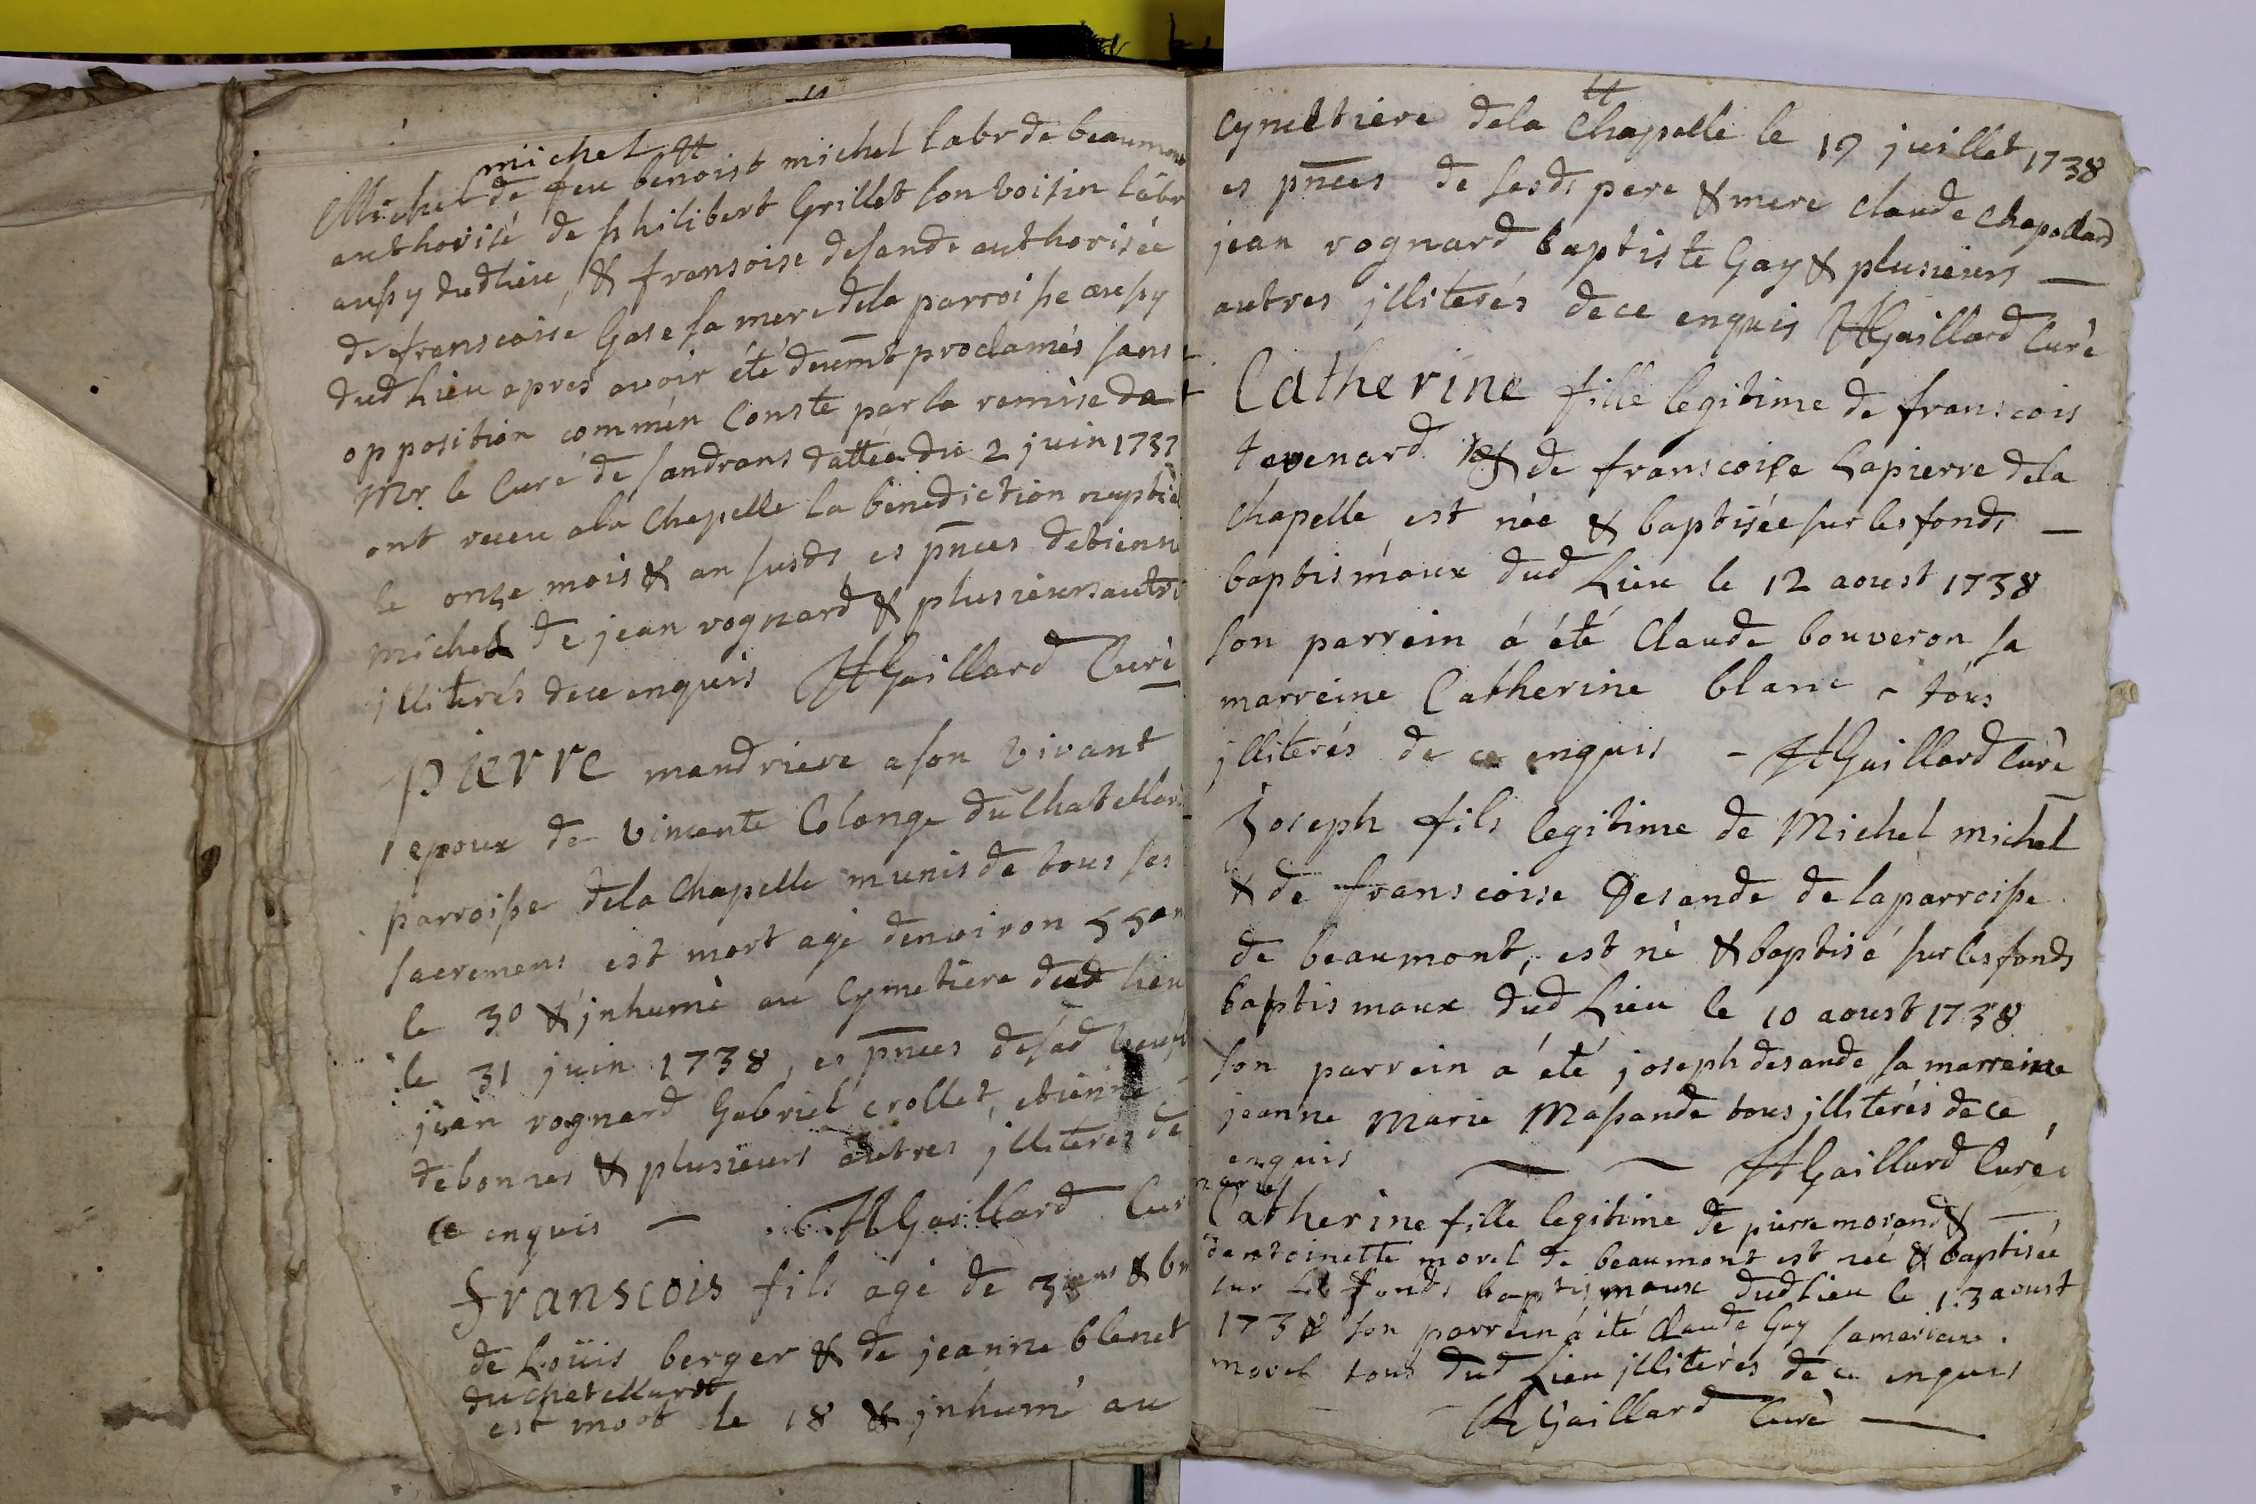 michel
Michel de feu benoist michel labr de beaumon
authorisé de philibert Grillet son voisin labr
aussy dudlieu, & fransoise desande authorisée
de franscoise Gase sa mere dela parroisse aussy
dud Lieu apres avoir été deuemt proclamés sans
opposition commen Conste par la remise de
Mr. le Curé de sandrans dattée du 2 juin 1737
ont receu ala Chapelle la benediction nuptia
le onze mois & an susds es pnces detienne
michel de jean rognard & plusieurs autre
jlliterés dece enquis Gaillard Curé
pierre mandriere a son vivant
epoux de vincente Colonge du Chatellar
parroisse dela Chapelle munis de tous ses
sacremens est mort agé denviron 55 an
le 30 & jnhumé au Cymetiere dud lieu
le 31 juin 1738, es pnces de sad
jean rognard Gabriel crollet, etienne
debonnes & plusieurs autres jlliteres de
ce enquis — Gaillard Cur
franscois fils agé de 3 ans &
de Loüis berger & de jeanne blenet
duchetellardt
est mort le 18 & jnhumé au
Cymetiere dela Chapelle le 19 juillet 1738
es pnces de sesds pere & mere claude chapollard
jean rognard baptiste Gay & plusieurs —
autres jlliterés dece enquis Gaillard Curé
Catherine fille legitime de franscois
tevenard & de franscoise Lapierre dela
chapelle est née & baptisée sur les fonds —
baptismaux dud Lieu le 12 aoust 1738
son parrein á été Claude bouveron sa
marreine Catherine blanc - tous
jlliterés de ce enquis - Gaillard Curé
Joseph fils legitime de Michel michel
& de franscoise Desande de laparroisse
de beaumont, est né & baptisé sur les fonds
baptismaux dud Lieu le 10 aoust 1738
son parrein a été joseph desande sa marreine
jeanne Marie Massande tous jlliterés de ce
enquis — — Gaillard Curé
marie
Catherine fille legitime de pierre morand & —
dantoinette morel de beaumont est née & baptisée
sur les fonds baptismaux dudlieu le 13 aoust
1738 son parrein á été Claude Gay samarreine
morel tous dud Lieu jlliterés de ce enquis
Gaillard Curé —